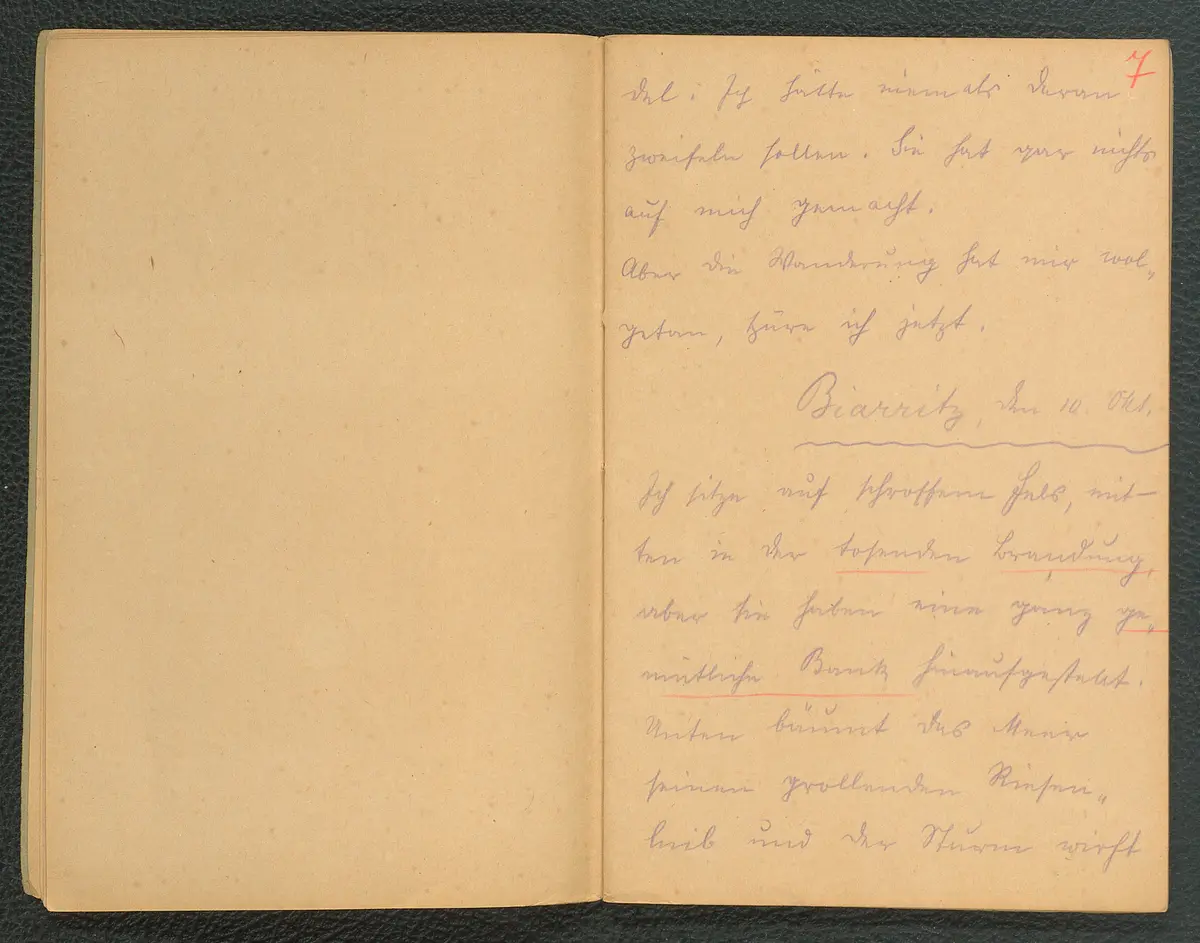 7
del: Ich hätte niemals daran
zweifeln sollen. Sie hat gar nichts
auf mich gemacht.
Aber die Wanderung hat mir wol„
getan, ich jetzt.
Biarritz, den 10. Okt.
Ich sitze auf schroffem Fels, mit-
ten in der tosenden Brandung,
aber sie haben eine ganz ge„
mütliche Bank hinaufgestellt.
Unten bäumt das Meer
seinen grollenden Riesen„
leib und der Sturm wirft